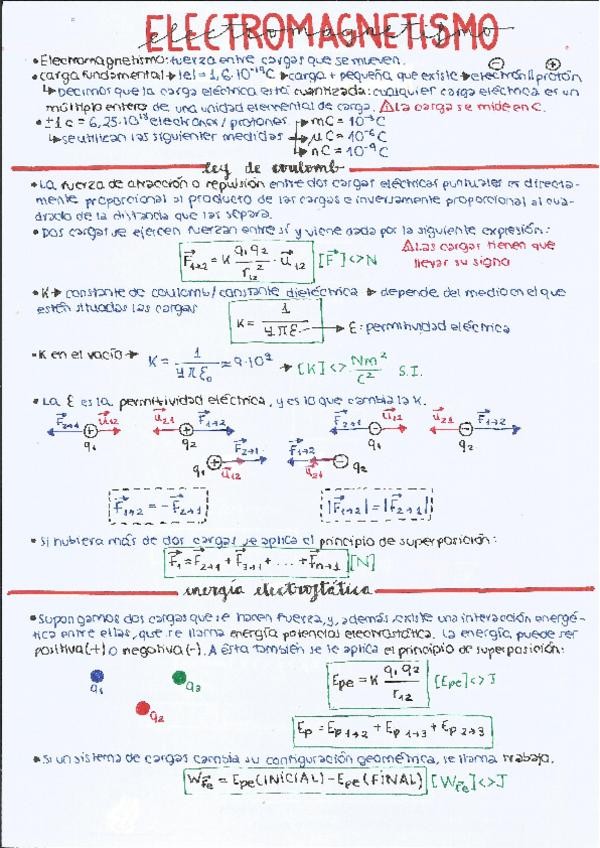 ELECTROMAGNETISMO
electromagnetismo
• Electromagnetismo: fuerza entre cargas que se mueven.
• carga fundamental → |e| = 1,6·10⁻¹⁹C → carga + pequeña que existe → electrón ⊖ | protón ⊕
↳ Decimos que la carga eléctrica está cuantizada: cualquier carga eléctrica es un
múltiplo entero de una unidad elemental de carga. ⚠ La carga se mide en C.
• ±1c = 6,25·10¹⁸ electrones/protones → mC = 10⁻³C
↳ se utilizan las siguienter medidas → μC = 10⁻⁶C
↳ nC = 10⁻⁹C
ley de coulomb
• La fuerza de atracción o repulsión entre dos cargas eléctricas puntuales es directa-
mente proporcional al producto de las cargas e inversamente proporcional al cua-
drado de la distancia que las separa.
• Dos cargas se ejercen fuerzan entre sí y viene dada por la siguiente expresión:
F⃗₁→₂ = K q₁q₂/r₁₂² · u⃗₁₂ [F⃗]<>N
⚠ Las cargas tienen que
llevar su signo
• K → constante de coulomb/constante dieléctrica → depende del medio en el que
estén situadas las cargas
K = 1/4πε → ε: permitividad eléctrica
• K en el vacío → K = 1/4πε₀ ≈ 9·10⁹ → [K]<> Nm²/C² S.I.
• La ε es la permitividad eléctrica, y es lo que cambia la K.
F⃗₂→₁ u⃗₁₂ u⃗₂₁ F⃗₁→₂ F⃗₂→₁ u⃗₁₂ u⃗₂₁ F⃗₁→₂
q₁ q₂ q₁ q₂
F⃗₂→₁ F⃗₁→₂
q₁ u⃗₁₂ u⃗₂₁ q₂
F⃗₁→₂ = -F⃗₂→₁ |F⃗₁→₂| = |F⃗₂→₁|
• Si hubiera más de dos cargas se aplica el principio de superposición:
F⃗₁ = F⃗₂→₁ + F⃗₃→₁ + ... + F⃗n→₁ [N]
energía electrostática
• Supongamos dos cargas que se hacen fuerza, y, además existe una interacción energé-
tica entre ellas, que se llama energía potencias electrostática. La energía puede ser
positiva (+) o negativa (-). A ésta también se le aplica el principio de superposición:
q₁ q₃ q₂
Epe = K q₁q₂/r₁₂ [Epe]<>J
Ep = Ep₁→₂ + Ep₁→₃ + Ep₂→₃
• Si un sistema de cargas cambia su configuración geométrica, se llama trabajo.
W_F⃗e = Epe(INICIAL) - Epe(FINAL) [W_F⃗e]<>J